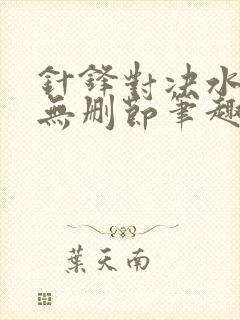 針鋒對決水
無刪節筆趣
葉天南